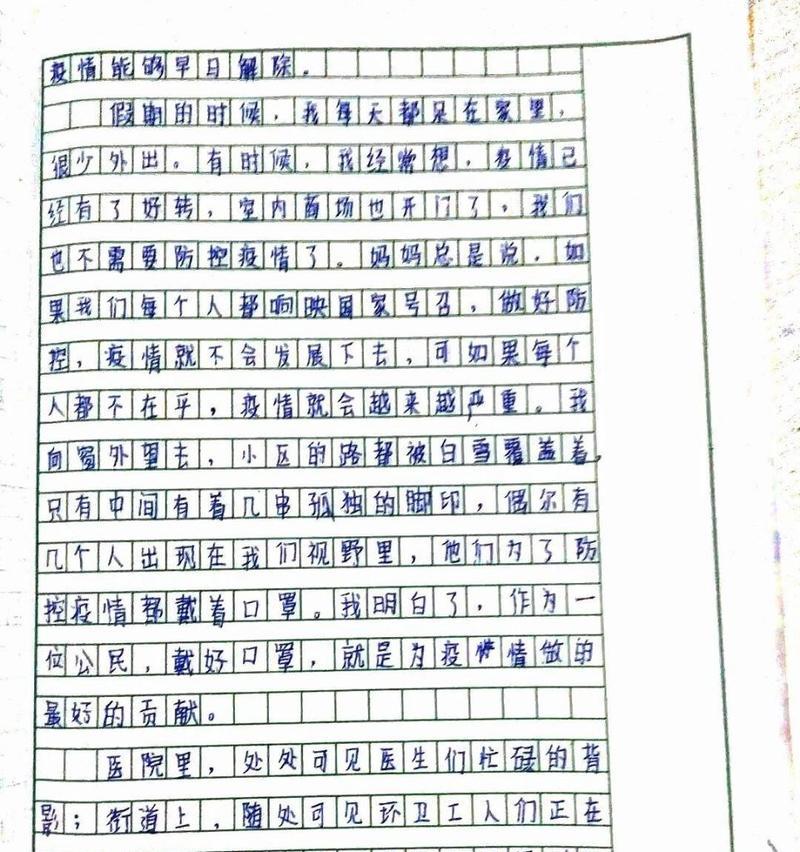 疫情能够早日解除。
假期的时候，我每天都呆在家里，
很少外出。有时候，我经常想，疫情已
经有了好转，室内商场也开门了，我们
也不需要防控疫情了。妈妈总是说，如
果我们每个人都响映国家号召，做好防
控，疫情就不会发展下去，可如果每个
人都不在乎，疫情就会越来越严重。我
向窗外望去，小区的路都被白雪覆盖着，
只有中间有着几串孤独的脚印，偶尔有
几个人出现在我们视野里，他们为了防
控疫情都戴着口罩。我明白了，作为一
位公民，戴好口罩，就是为疫情做的
最好的贡献。
医院里，处处可见医生们忙碌的背
影；街道上，随处可见环卫工人们正在